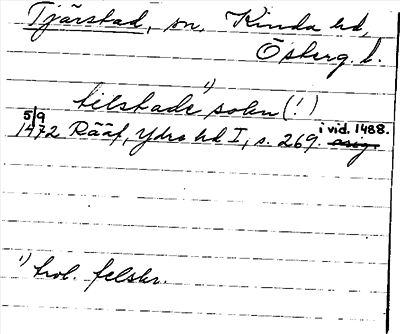 Tjärstad, sn, Kinda hd,
Österg. l.
tilstade ¹⁾ sokn (!)
5/9 1472 Rääf, Ydre hd I, s. 269. i vid. 1488. orig.
¹⁾ trol. felskr.